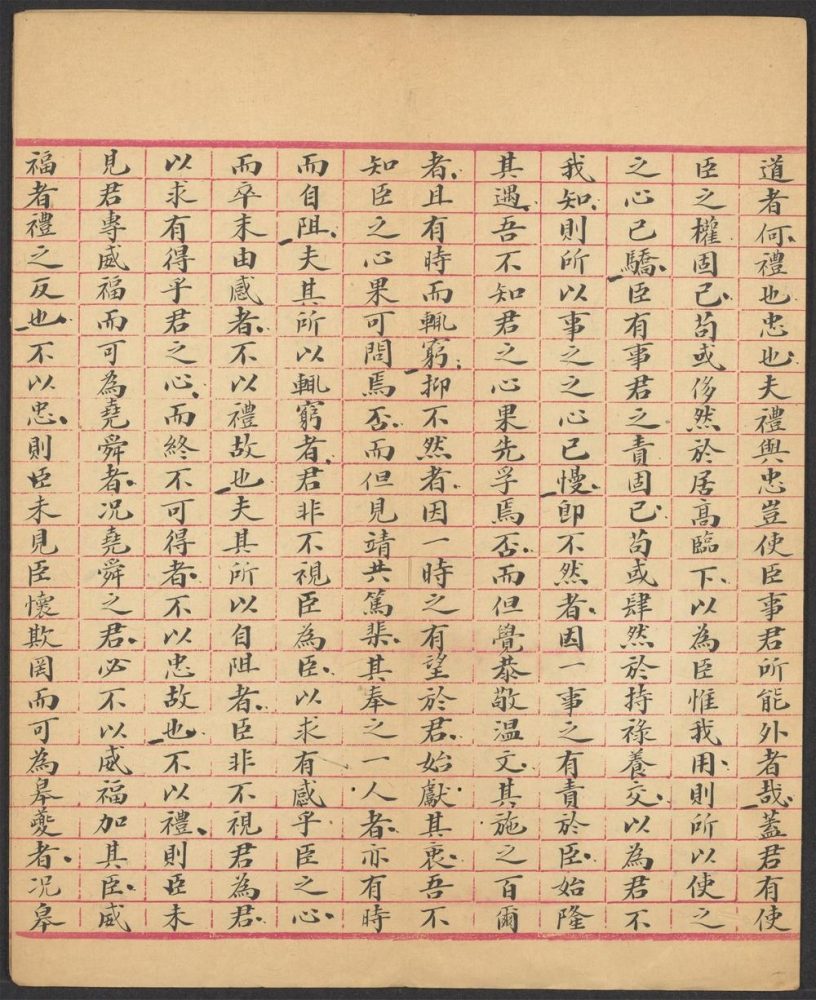 道者何禮也忠也夫禮與忠豈使臣事君所能外者哉蓋君有使
臣之權固已苟或侈然於居高臨下以為臣惟我用則所以使之
之心已驕臣有事君之責固已苟或肆然於持祿養交以為君不
我知則所以事之之心已慢即不然者因一事之有責於臣始隆
其遇吾不知君之心果先孚焉否而但覺恭敬溫文其施之百爾
者且有時而輒窮抑不然者因一時之有望於君始獻其衷吾不
知臣之心果可問焉否而但見靖共篤棐其奉之一人者亦有時
而自阻夫其所以輒窮者君非不視臣為臣以求有感乎臣之心
而卒未由感者不以禮故也夫其所以自阻者臣非不視君為君
以求有得乎君之心而終不可得者不以忠故也不以禮則臣未
見君專威福而可為堯舜者况堯舜之君必不以威福加其臣威
福者禮之反也不以忠則臣未見臣懷欺罔而可為皋夔者况皋